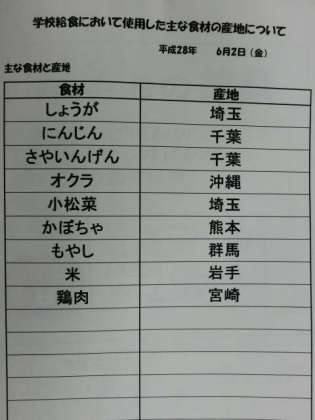 学校給食において使用した主な食材の産地について
平成28年 6月2日(金)
主な食材と産地
食材 産地
しょうが 埼玉
にんじん 千葉
さやいんげん 千葉
オクラ 沖縄
小松菜 埼玉
かぼちゃ 熊本
もやし 群馬
米 岩手
鶏肉 宮崎